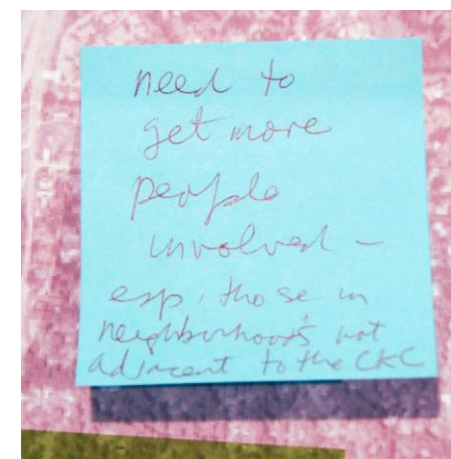 need to
get more
people
involved –
esp. those in
neighborhoods not
adjacent to the CKC